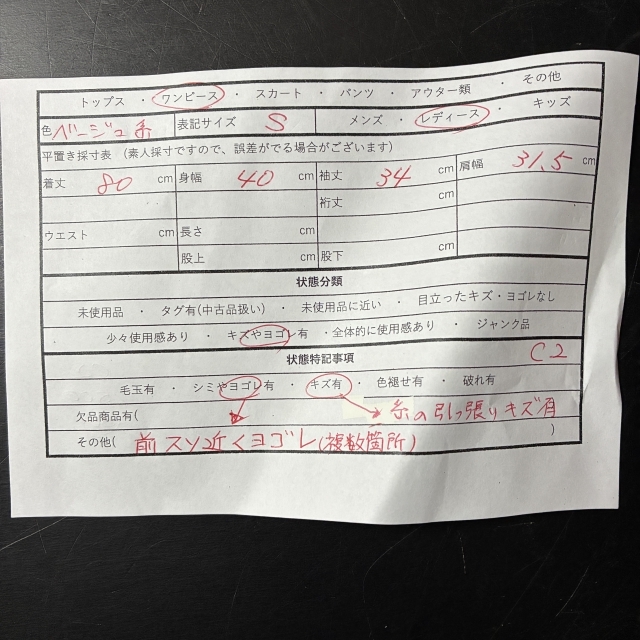 トップス ・ ワンピース ・ スカート ・ パンツ ・ アウター類 ・ その他
色 ベージュ系 表記サイズ S メンズ ・ レディース ・ キッズ
平置き採寸表 (素人採寸ですので、誤差がでる場合がございます)
着丈 80 cm 身幅 40 cm 袖丈 34 cm 肩幅 31.5 cm
裄丈 cm
ウエスト cm 長さ cm
股上 cm 股下 cm
状態分類
未使用品 ・ タグ有(中古品扱い) ・ 未使用品に近い ・ 目立ったキズ・ヨゴレなし
少々使用感あり ・ キズやヨゴレ有 ・全体的に使用感あり ・ ジャンク品
状態特記事項 C2
毛玉有 ・ シミやヨゴレ有 ・ キズ有 ・ 色褪せ有 ・ 破れ有
欠品商品有( 糸の引っ張りキズ有
その他( 前スソ近くヨゴレ(複数箇所) )